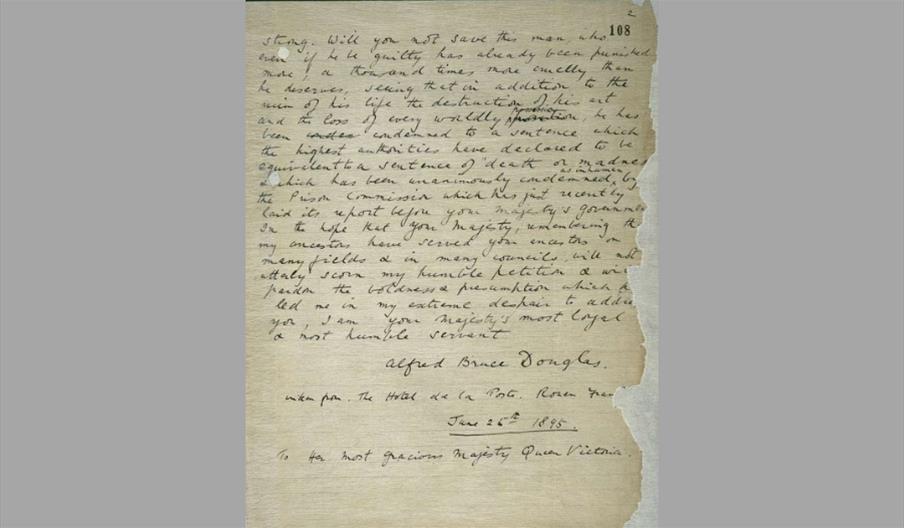 2
108
strong. Will you not save this man, who
even if he be guilty has already been punished
more, a thousand times more cruelly than
he deserves, seeing that in addition to the
ruin of his life the destruction of his art
and the loss of every worldly he has
been condemned to a sentence which
the highest authorities have declared to be
equivalent to a sentence of "death or madnes
& which has been unanimously condemned as inhuman by
the Prison Commission which has just recently
laid its report before your Majesty's governmen
In the hope that your Majesty, remembering th
my ancestors have served your ancestors on
many fields & in many councils, will not
utterly scorn my humble petition & wil
pardon the boldness & presumption which h
led me in my extreme despair to addre
you, I am your Majesty's most loyal
& most humble servant
Alfred Bruce Douglas.
written from. The Hotel de la Poste. Rouen Fran
June 25th 1895.
To Her most gracious Majesty Queen Victoria.